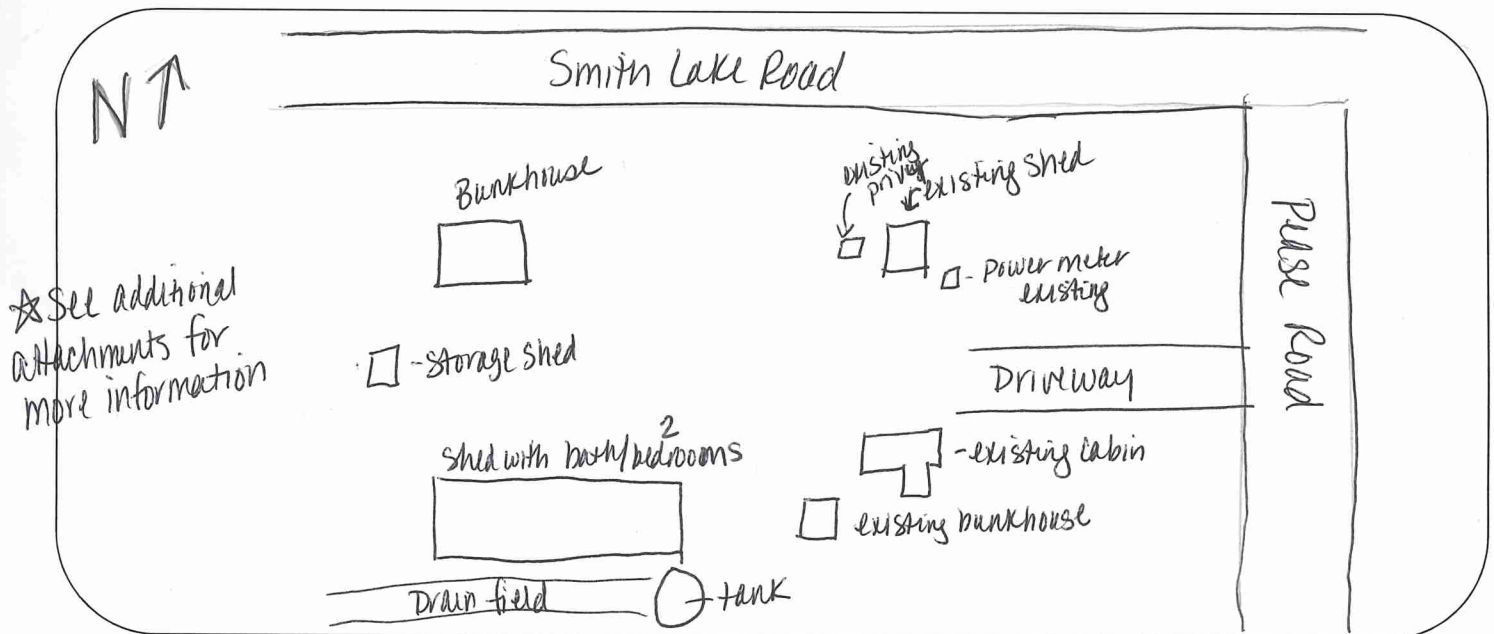 N
Smith Lake Road
Bunkhouse
existing
privy
existing shed
- Power meter
existing
Pease Road
☆ See additional
attachments for
more information
- storage shed
Driveway
2
shed with bath/bedrooms
- existing cabin
existing bunkhouse
Drain field
tank